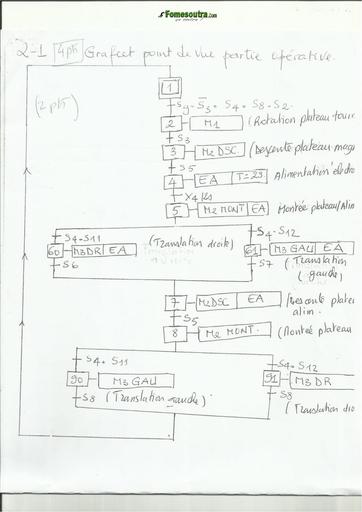 Fomesoutra.com
2-1 4pts Grafcet point de vue partie opérative.
(2 pts)
1
S9 - S̅3 • S4 • S8 - S2
2 M1 (Rotation plateau tour
S3
3 M2 DSC (Descente plateau magn
S5
4 EA T=2S Alimentation électro
X4/2s
5 M2 MONT EA Montée plateau/Alim
S4-S11 (Translation droite) S4-S12
60 M3DR EA 61 M3 GAU EA
S6 S7 (Translation gauche)
7 M2DSC EA Descente plateau
alim.
S5
8 M2 MONT. (Montée plateau
S4 • S11 S4 • S12
90 M3 GAU 91 M3 DR
S8 (Translation gauche) S8
(Translation dro